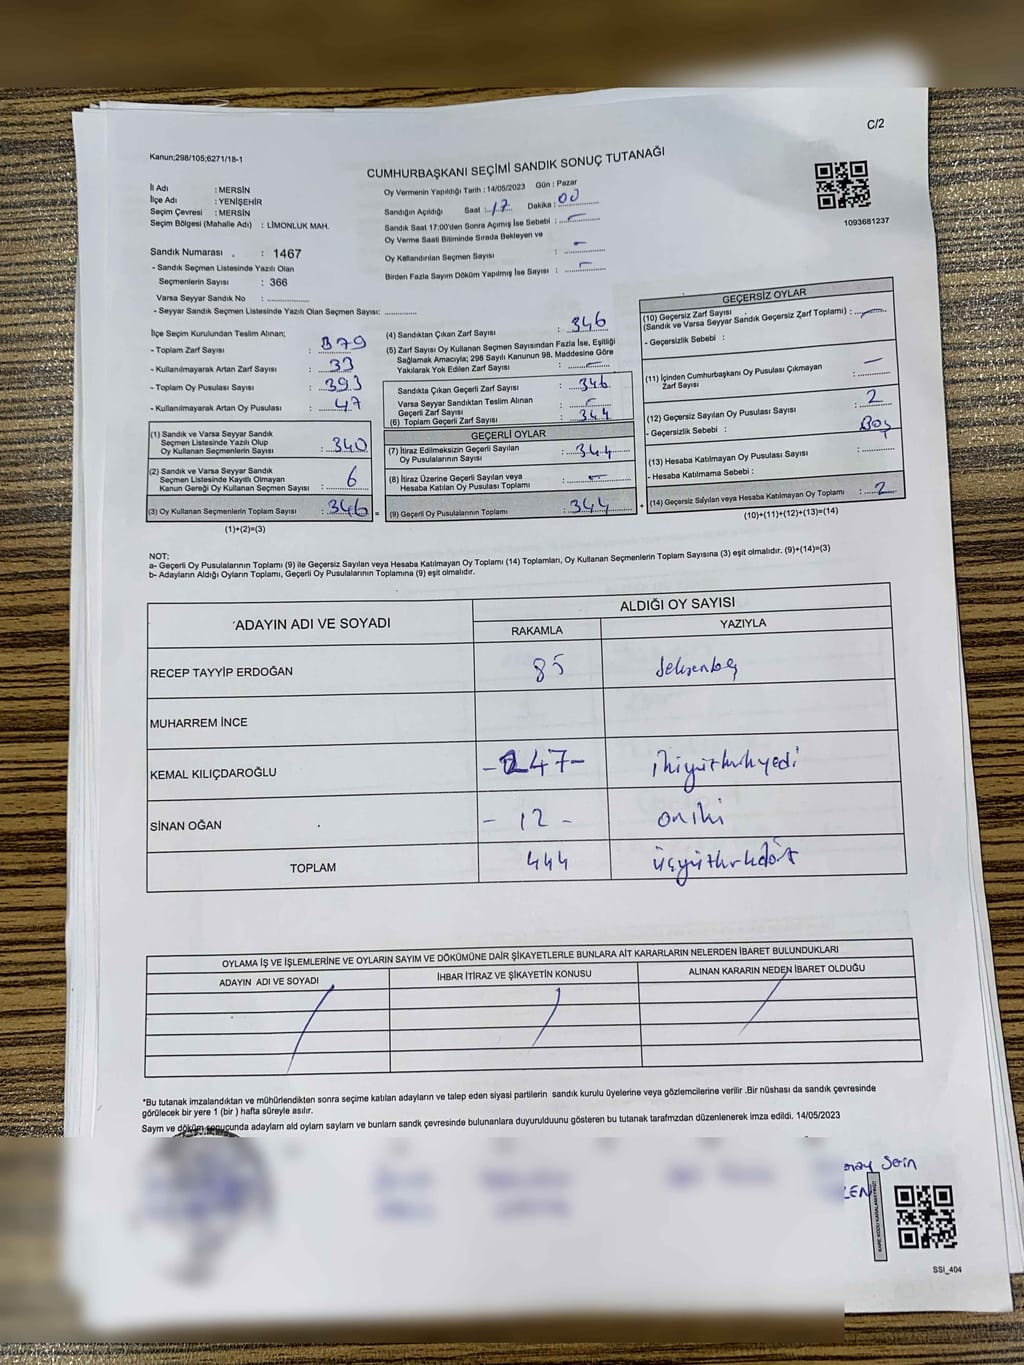 C/2
Kanun;298/105;6271/18-1
CUMHURBAŞKANI SEÇİMİ SANDIK SONUÇ TUTANAĞI
İl Adı : MERSİN
İlçe Adı : YENİŞEHİR
Seçim Çevresi : MERSİN
Seçim Bölgesi (Mahalle Adı) : LİMONLUK MAH.
Sandık Numarası : 1467
- Sandık Seçmen Listesinde Yazılı Olan
Seçmenlerin Sayısı : 366
Varsa Seyyar Sandık No :
- Seyyar Sandık Seçmen Listesinde Yazılı Olan Seçmen Sayısı:
Oy Vermenin Yapıldığı Tarih : 14/05/2023 Gün : Pazar
Sandığın Açıldığı Saat : 17 Dakika : 00
Sandık Saat 17:00'den Sonra Açımış İse Sebebi : -
Oy Verme Saati Bitiminde Sırada Bekleyen ve
Oy Kullandırılan Seçmen Sayısı : -
Birden Fazla Sayım Döküm Yapılmış İse Sayısı : -
1093681237
İlçe Seçim Kurulundan Teslim Alınan;
- Toplam Zarf Sayısı : 379
- Kullanılmayarak Artan Zarf Sayısı : 33
- Toplam Oy Pusulası Sayısı : 393
- Kullanılmayarak Artan Oy Pusulası : 47
(1) Sandık ve Varsa Seyyar Sandık
Seçmen Listesinde Yazılı Olup
Oy Kullanan Seçmenlerin Sayısı : 340
(2) Sandık ve Varsa Seyyar Sandık
Seçmen Listesinde Kayıtlı Olmayan
Kanun Gereği Oy Kullanan Seçmen Sayısı : 6
(3) Oy Kullanan Seçmenlerin Toplam Sayısı : 346 =
(1)+(2)=(3)
(4) Sandıktan Çıkan Zarf Sayısı : 346
(5) Zarf Sayısı Oy Kullanan Seçmen Sayısından Fazla İse, Eşitliği
Sağlamak Amacıyla; 298 Sayılı Kanunun 98. Maddesine Göre
Yakılarak Yok Edilen Zarf Sayısı : -
Sandıkta Çıkan Geçerli Zarf Sayısı : 346
Varsa Seyyar Sandıktan Teslim Alınan
Geçerli Zarf Sayısı : -
(6) Toplam Geçerli Zarf Sayısı : 344
GEÇERLİ OYLAR
(7) İtiraz Edilmeksizin Geçerli Sayılan
Oy Pusulalarının Sayısı : 344
(8) İtiraz Üzerine Geçerli Sayılan veya
Hesaba Katılan Oy Pusulası Toplamı : -
(9) Geçerli Oy Pusulalarının Toplamı : 344 +
GEÇERSİZ OYLAR
(10) Geçersiz Zarf Sayısı
(Sandık ve Varsa Seyyar Sandık Geçersiz Zarf Toplamı) : -
- Geçersizlik Sebebi :
(11) İçinden Cumhurbaşkanı Oy Pusulası Çıkmayan
Zarf Sayısı :
(12) Geçersiz Sayılan Oy Pusulası Sayısı : 2
- Geçersizlik Sebebi : Boş
(13) Hesaba Katılmayan Oy Pusulası Sayısı :
- Hesaba Katılmama Sebebi :
(14) Geçersiz Sayılan veya Hesaba Katılmayan Oy Toplamı : 2
(10)+(11)+(12)+(13)=(14)
NOT:
a- Geçerli Oy Pusulalarının Toplamı (9) ile Geçersiz Sayılan veya Hesaba Katılmayan Oy Toplamı (14) Toplamları, Oy Kullanan Seçmenlerin Toplam Sayısına (3) eşit olmalıdır. (9)+(14)=(3)
b- Adayların Aldığı Oyların Toplamı, Geçerli Oy Pusulalarının Toplamına (9) eşit olmalıdır.
ADAYIN ADI VE SOYADI
ALDIĞI OY SAYISI
RAKAMLA YAZIYLA
RECEP TAYYİP ERDOĞAN 85 seksenbeş
MUHARREM İNCE
KEMAL KILIÇDAROĞLU -247- ikiyüzkırkyedi
SİNAN OĞAN - 12 - oniki
TOPLAM 444 üçyüzkırkdört
OYLAMA İŞ VE İŞLEMLERİNE VE OYLARIN SAYIM VE DÖKÜMÜNE DAİR ŞİKAYETLERLE BUNLARA AİT KARARLARIN NELERDEN İBARET BULUNDUKLARI
ADAYIN ADI VE SOYADI İHBAR İTİRAZ VE ŞİKAYETİN KONUSU ALINAN KARARIN NEDEN İBARET OLDUĞU
*Bu tutanak imzalandıktan ve mühürlendikten sonra seçime katılan adayların ve talep eden siyasi partilerin sandık kurulu üyelerine veya gözlemcilerine verilir .Bir nüshası da sandık çevresinde
görülecek bir yere 1 (bir ) hafta süreyle asılır.
Sayım ve döküm sonucunda adayların ald oyların saylam ve bunlam sandk çevresinde bulunanlara duyurulduunu gösteren bu tutanak tarafmzdan düzenlenerek imza edildi. 14/05/2023
Serin
SSI_404